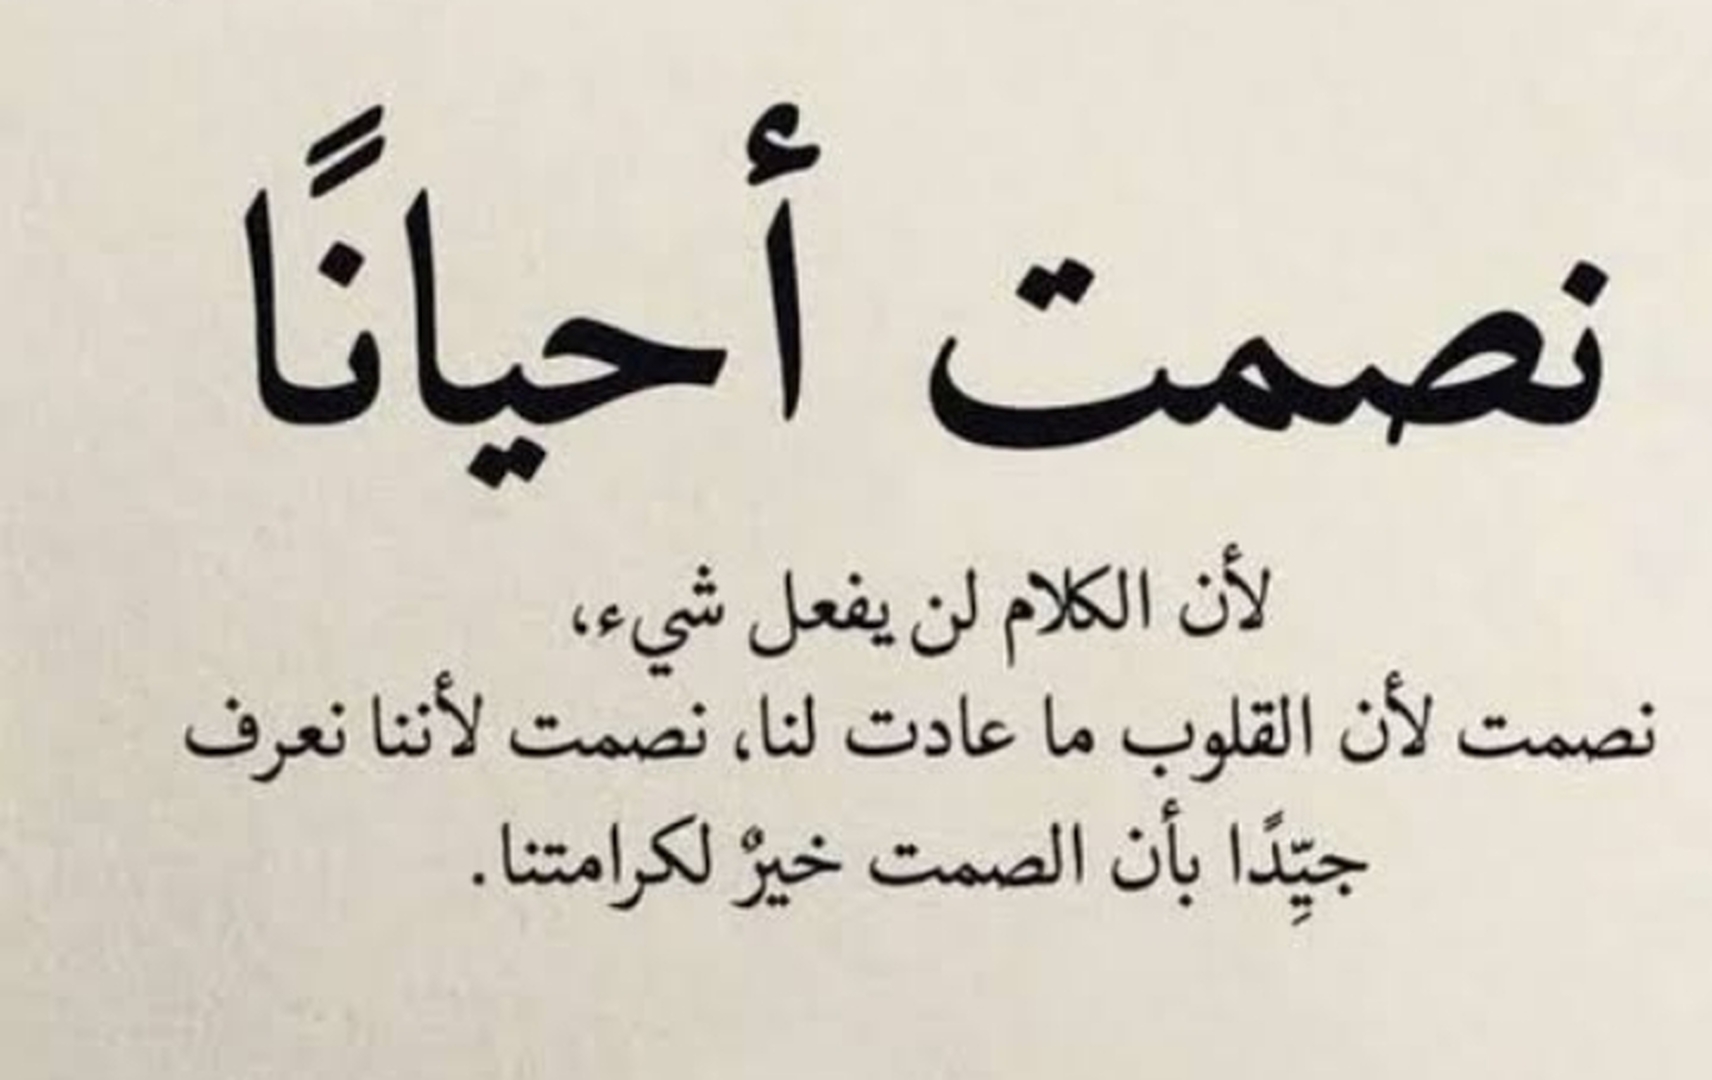 نصمت أحيانًا
لأن الكلام لن يفعل شيء،
نصمت لأن القلوب ما عادت لنا، نصمت لأننا نعرف
جيّدًا بأن الصمت خيرٌ لكرامتنا.